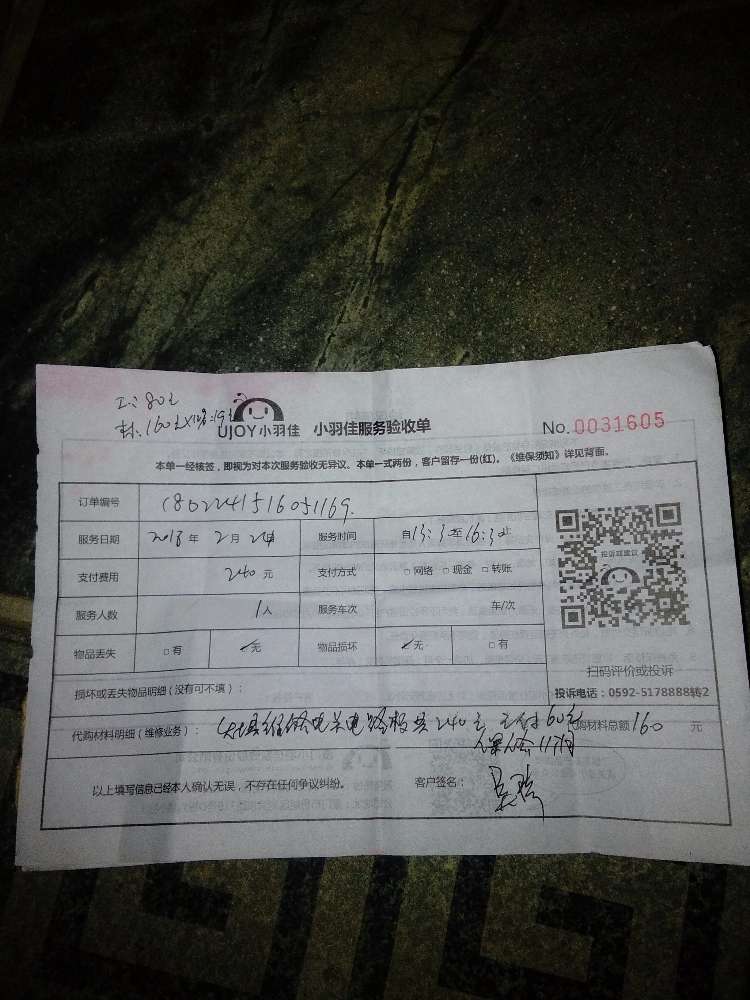 工:80元
材:160元
UJOY小羽佳 小羽佳服务验收单 No.0031605
本单一经核签，即视为对本次服务验收无异议、本单一式两份，客户留存一份(红)。《维保须知》详见背面。
订单编号
服务日期 2018年2月24日 服务时间 自15:30至16:30止
支付费用 240元 支付方式 □网络 □现金 □转账
服务人数 1人 服务车次 车/次
物品丢失 □有 ☑无 物品损坏 ☑无 □有
投诉或建议
扫码评价或投诉
投诉电话：0592-5178888转2
损坏或丢失物品明细（没有可不填）：
代购材料明细（维修业务）： 维修电 电路板共240元 支付60元 代购材料总额160元
以上填写信息已经本人确认无误，不存在任何争议纠纷。 客户签名：